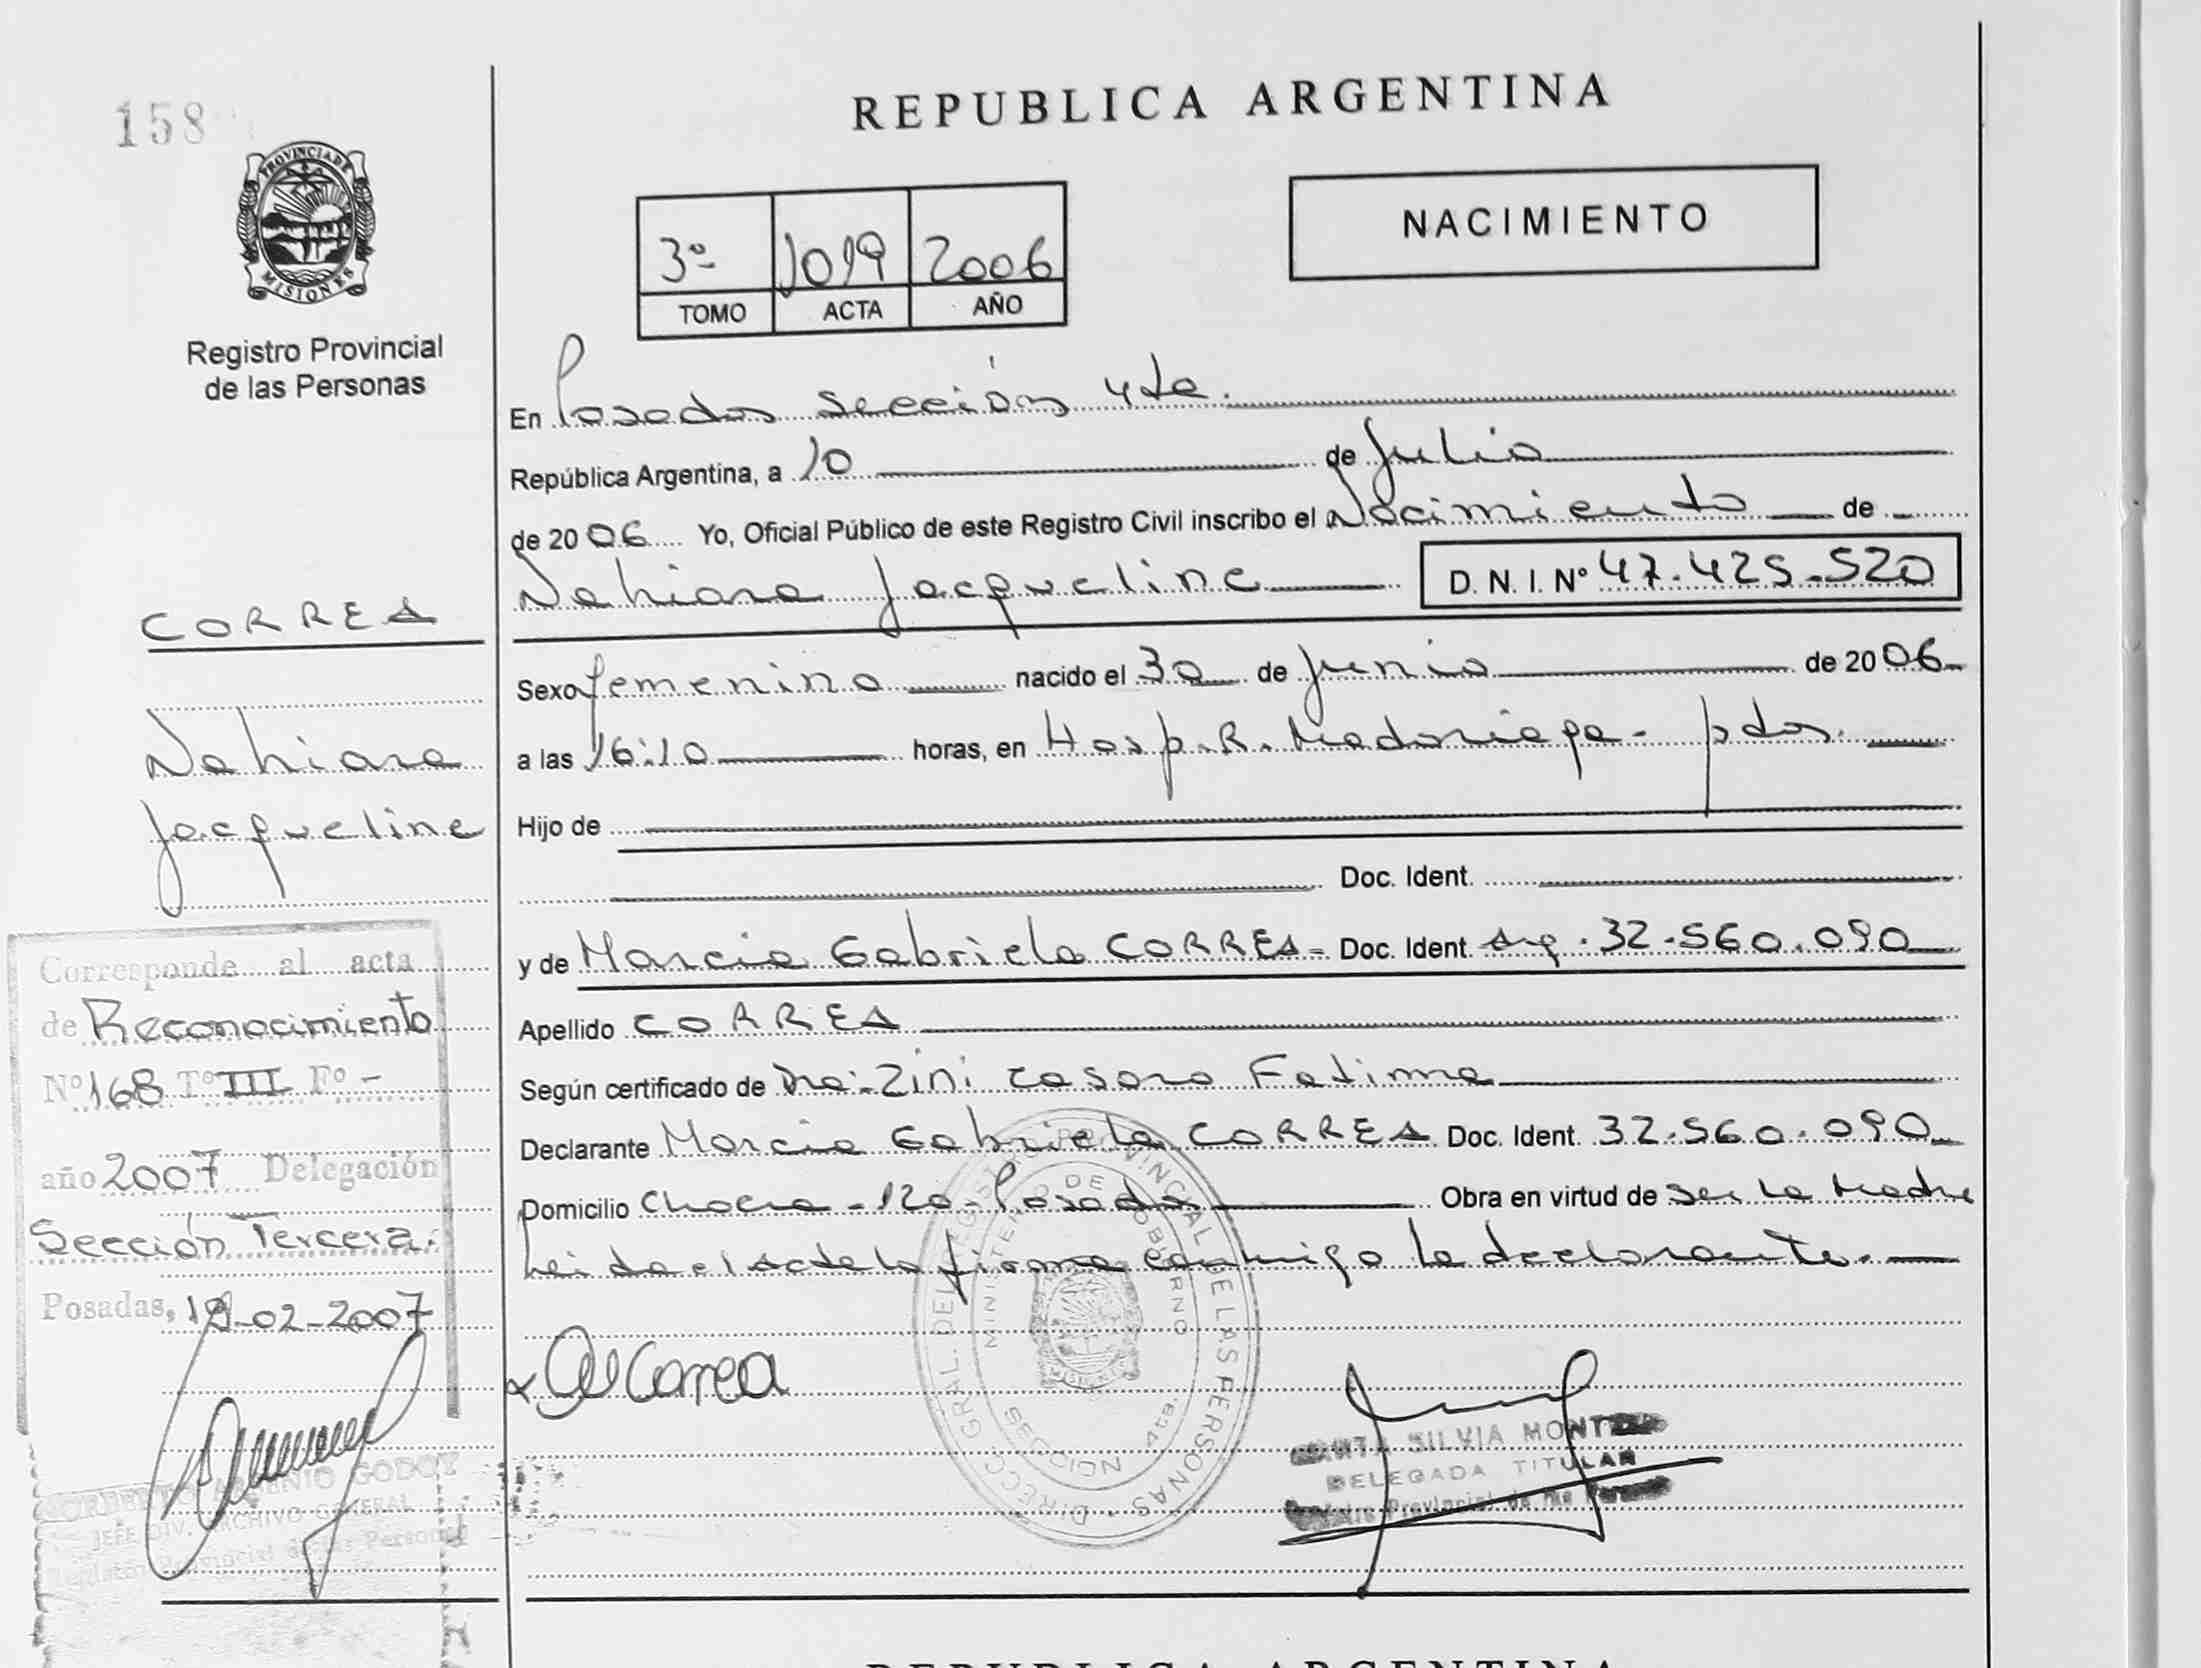 158
PROVINCIA DE
MISIONES
Registro Provincial
de las Personas
REPUBLICA ARGENTINA
NACIMIENTO
3º 1019 2006
TOMO ACTA AÑO
En Posadas Sección 4ta.
República Argentina, a 10 de Julio
de 2006 Yo, Oficial Público de este Registro Civil inscribo el Nacimiento de
Nahiara Jacqueline D. N. I. Nº 47.425.520
Sexo femenino nacido el 30 de Junio de 2006
a las 16:10 horas, en Hosp. R. Madariaga - pdas.
Hijo de
Doc. Ident.
y de Marcia Gabriela CORREA = Doc. Ident. Arg. 32.560.090
Apellido CORREA
Según certificado de Dra: Zini Fatima
Declarante Marcia Gabriela CORREA Doc. Ident. 32.560.090
Domicilio - 120 - Posadas Obra en virtud de ser la Madre
Leida el acta la firma conmigo la declarante.
CORREA
Nahiara
Jacqueline
Corresponde al acta
de Reconocimiento
Nº 168 Tº III Fº -
año 2007 Delegación
Sección Tercera.
Posadas, 19-02-2007
Correa
DIRECC. GRAL. DEL REGISTRO PROVINCIAL DE LAS PERSONAS
MINISTERIO DE GOBIERNO
4ta.
MISIONES
SILVIA
DELEGADA TITULAR
Provincial de las
GODOY
JEFE DIV. ARCHIVO GENERAL
Provincial de las Personas
REPUBLICA ARGENTINA